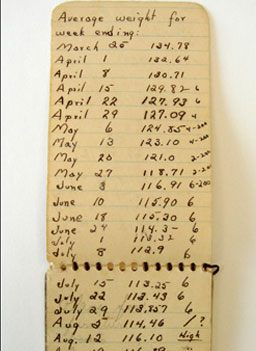 Average weight for
week ending:
March 25 134.78
April 1 132.64
April 8 130.71
April 15 129.82 6
April 22 127.93 6
April 29 127.09 6
May 6 124.85 4-200
May 13 123.10 4-200
May 20 121.0 2-200
May 27 118.71 2-200
June 3 116.91 6-200
June 10 115.90 6
June 18 115.30 6
June 24 114.3- 6
July 1 113.32 6
July 8 112.9 6
July 15 113.25 6
July 22 113.43 6
July 29 113.857 6
Aug 5 114.46 1?
Aug. 12 116.10 High